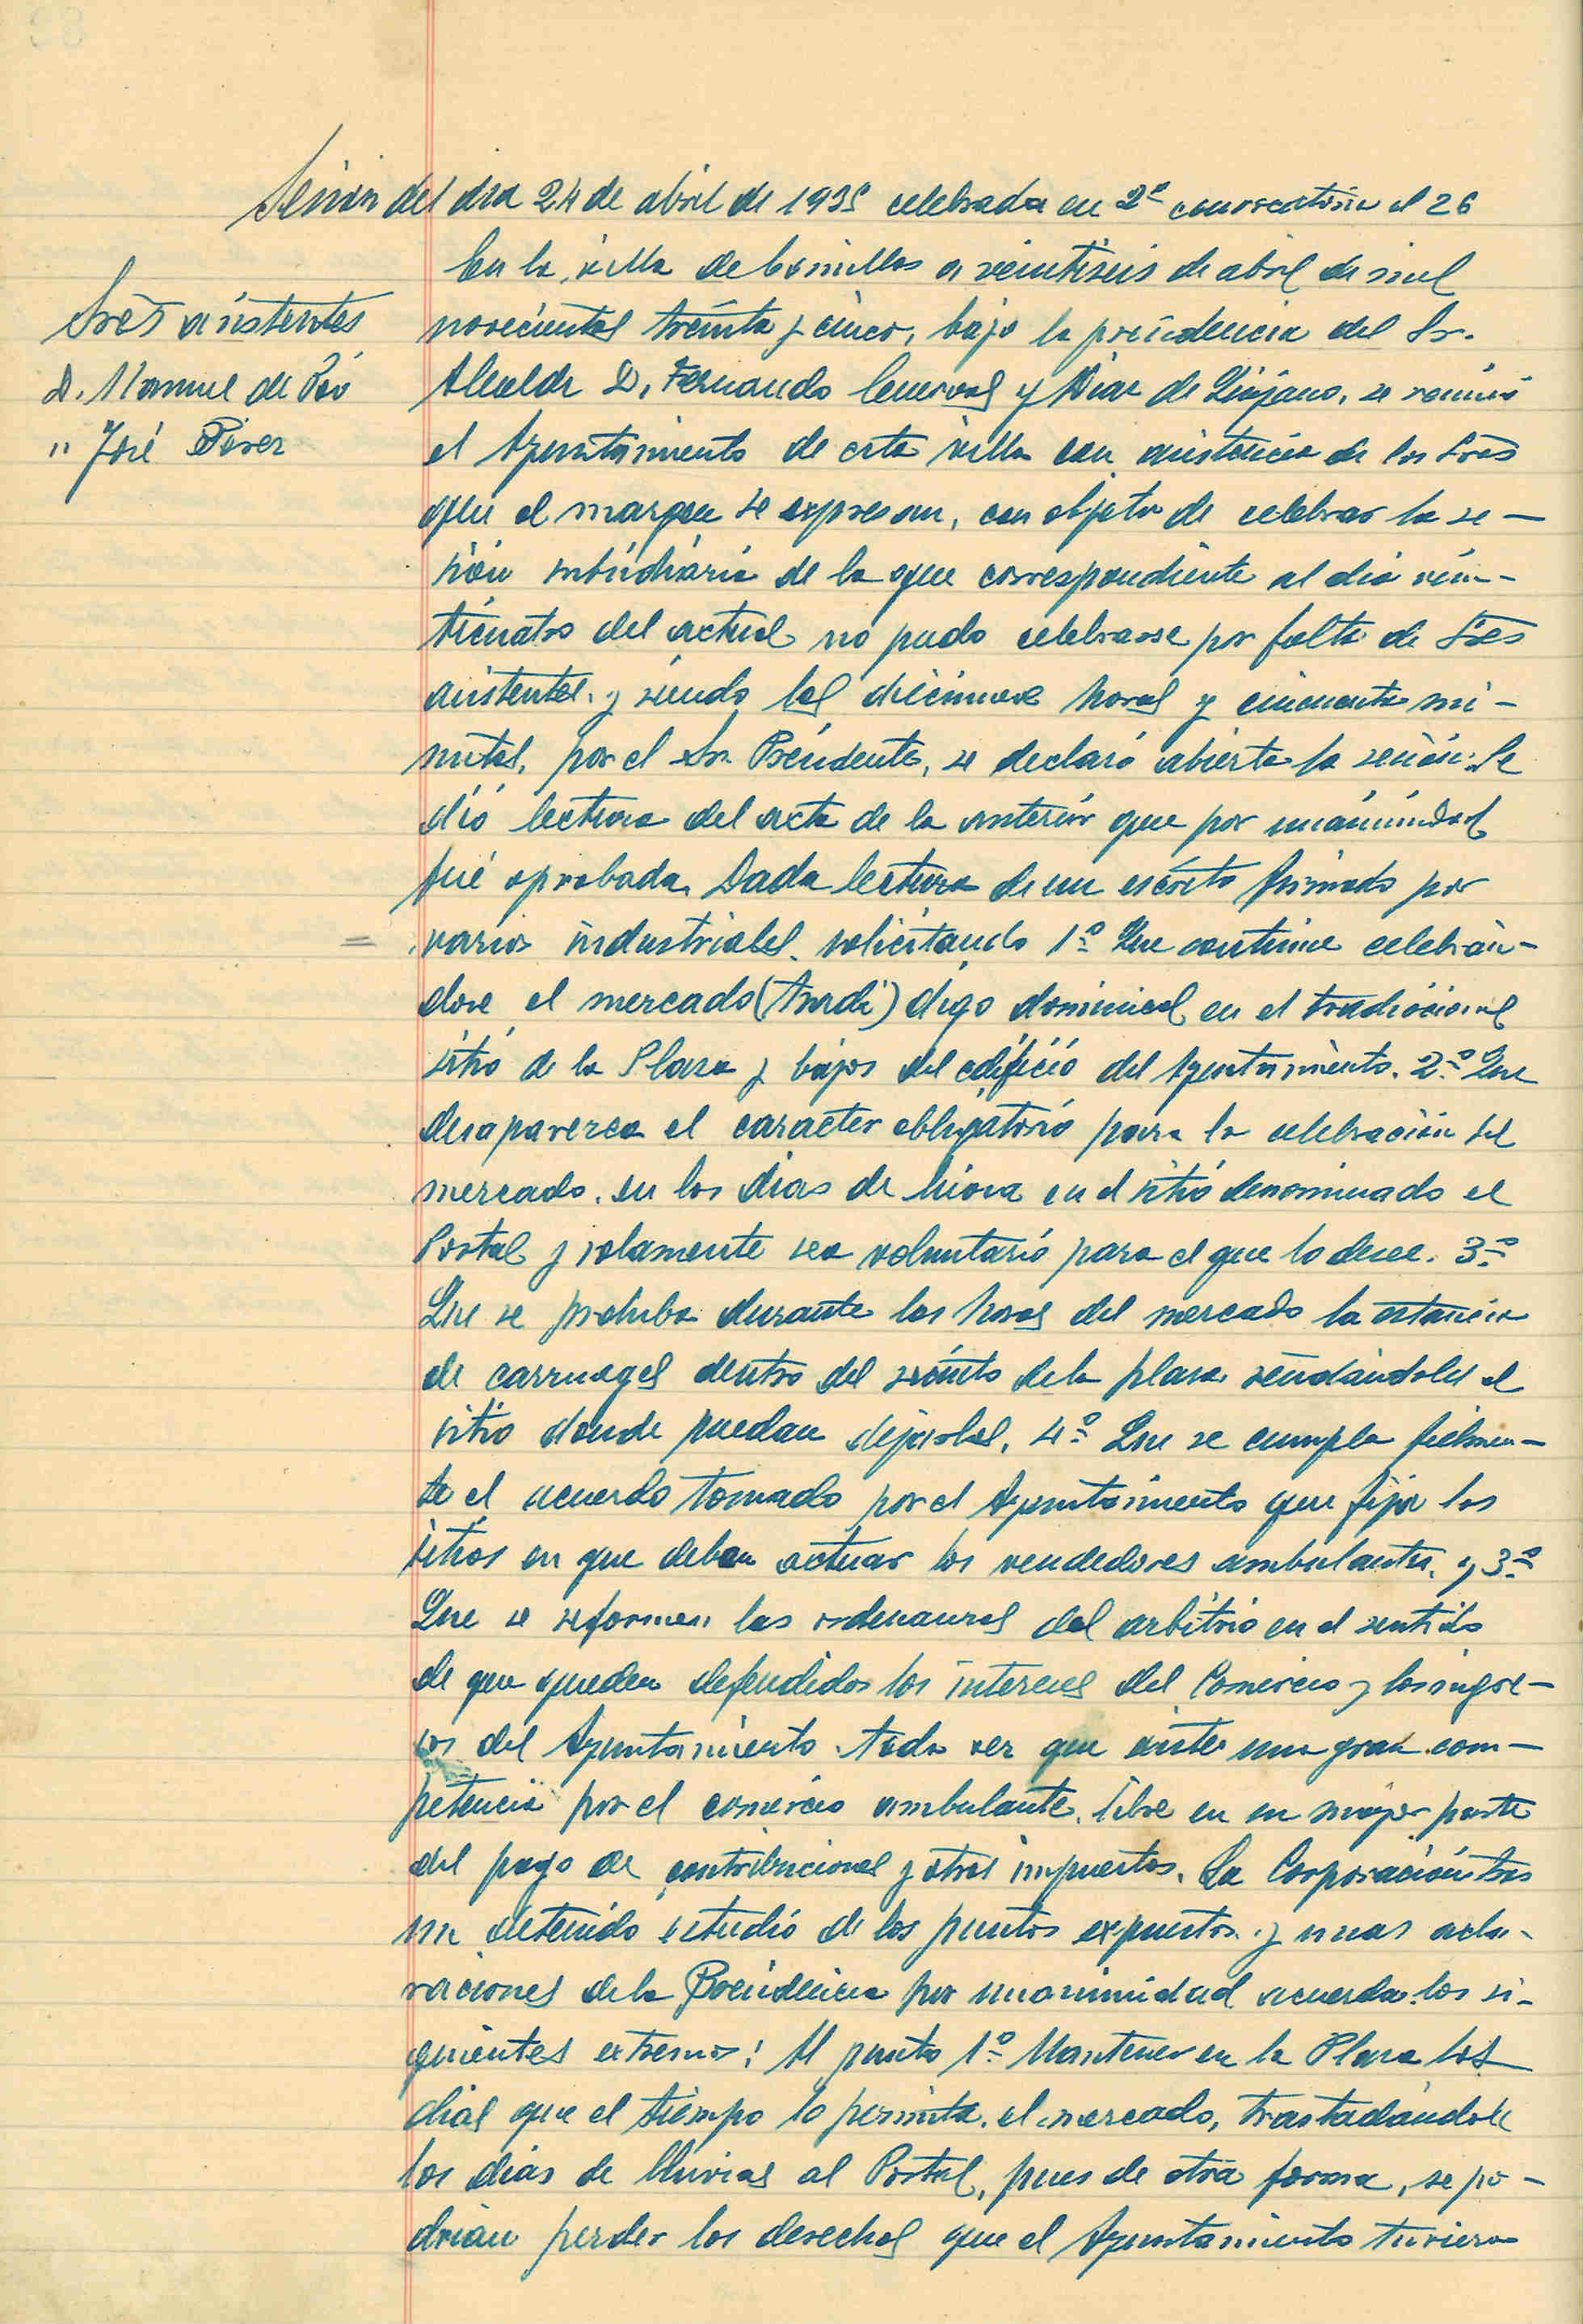 Sesión del dia 24 de abril de 1935 celebrada en 2ª convocatoria el 26
Sres asistentes
D. Manuel de Pío
" José Pérez
En la villa de Comillas a veintiseis de abril de mil
novecientos treinta y cinco, bajo la presidencia del Sr.
Alcalde D. Fernando y Diaz de se reunió
el Ayuntamiento de esta villa con asistencia de los Sres
que al margen se expresan, con objeto de celebrar la se-
sión subsidiaria de la que correspondiente al día vein-
ticuatro del actual no pudo celebrarse por falta de Sres
asistentes y siendo las diecinueve horas y cincuenta mi-
nutos, por el Sr. Presidente, se declaró abierta la sesión. Se
dió lectura del acta de la anterior que por unánimidad
fué aprobada. Dada lectura de un escrito firmado por
varios industriales, solicitando 1º Que continue celebrán-
dose el mercado (tradi) digo dominical en el tradicional
sitio de la Plaza y bajos del edificio del Ayuntamiento. 2º Que
desaparezca el caracter obligatorio para la celebración del
mercado, en los dias de lluvia en el sitio denominado el
Portal y solamente sea voluntario para el que lo desee. 3º
Que se prohiba durante las horas del mercado la estancia
de carruages dentro del recinto de la plaza, señalándoles el
sitio donde puedan dejarlos. 4º Que se cumpla fielmen-
te el acuerdo tomado por el Ayuntamiento que fija los
sitios en que deben actuar los vendedores ambulantes, y 3º
Que se reformen las ordenanzas del arbitrio en el sentido
de que queden defendidos los intereses del Comercio y los ingre-
sos del Ayuntamiento, toda vez que existe una gran com-
petencia por el comercio ambulante, libre en su mayor parte
del pago de contribuciones y otros impuestos. La Corporación tras
un detenido estudio de los puntos expuestos y unas acla-
raciones de la Presidencia por unanimidad acuerda los si-
guientes extremos: Al punto 1º Mantener en la Plaza los
dias que el tiempo lo permita, el mercado, trastadándole
los dias de lluvias al Portal, pues de otra forma, se po-
drian perder los derechos que el Ayuntamiento tuviera